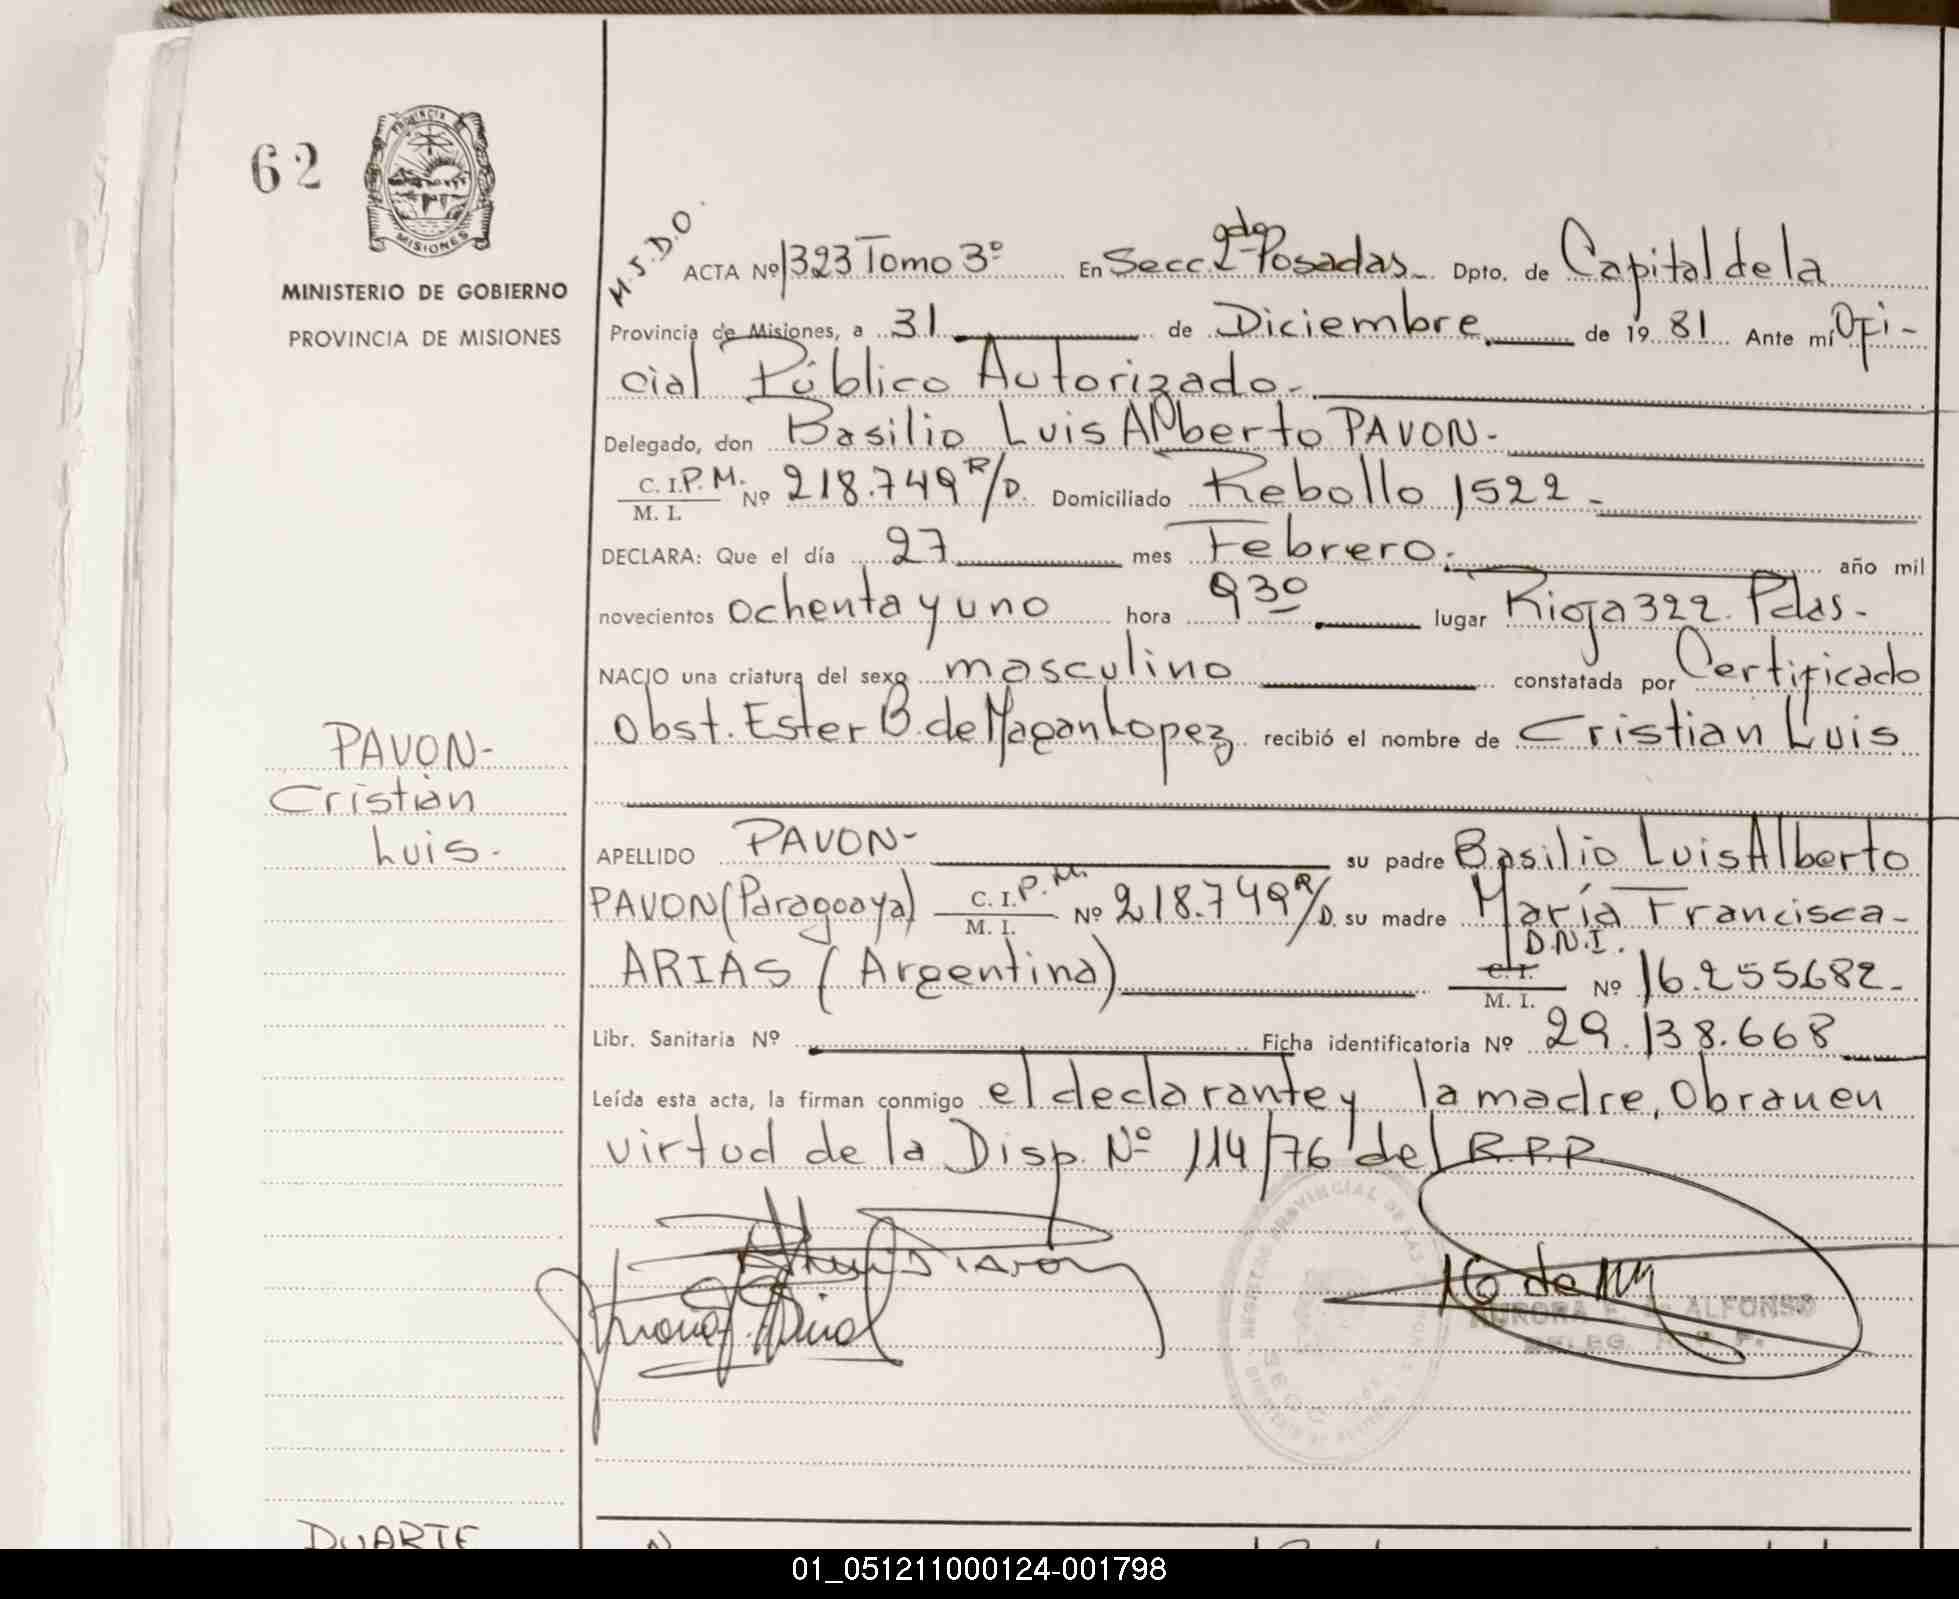 62
PROVINCIA DE
MISIONES
MINISTERIO DE GOBIERNO
PROVINCIA DE MISIONES
M.J.D.O.
ACTA Nº 1323 Tomo 3º En Secc. 2da Posadas Dpto. de Capital de la
Provincia de Misiones, a 31 de Diciembre de 19 81 Ante mí Ofi-
cial Público Autorizado.-
Delegado, don Basilio Luis Alberto PAVON-
C. I.P.M. Nº 218.749 R/D. Domiciliado Rebollo 1522-
M. I.
DECLARA: Que el día 27 mes Febrero. año mil
novecientos ochenta y uno hora 930 lugar Rioja 322. Pdas-
NACIO una criatura del sexo masculino constatada por Certificado
Obst. Ester B. de Magan Lopez recibió el nombre de Cristian Luis
PAVON-
Cristian
Luis.
APELLIDO PAVON- su padre Basilio Luis Alberto
PAVON (Paragoaya) C. I.P.M. Nº 218.749 R/D. su madre María Francisca-
M. I.
D.N.I.
ARIAS (Argentina) C. I. Nº 16.255682-
M. I.
Libr. Sanitaria Nº Ficha identificatoria Nº 29.138.668
Leída esta acta, la firman conmigo el declarante y la madre, Obran en
virtud de la Disp. Nº 114/76 del R.P.P
AURORA E. de ALFONSO
DELEG. R. P. P.
DUARTE
01_051211000124-001798